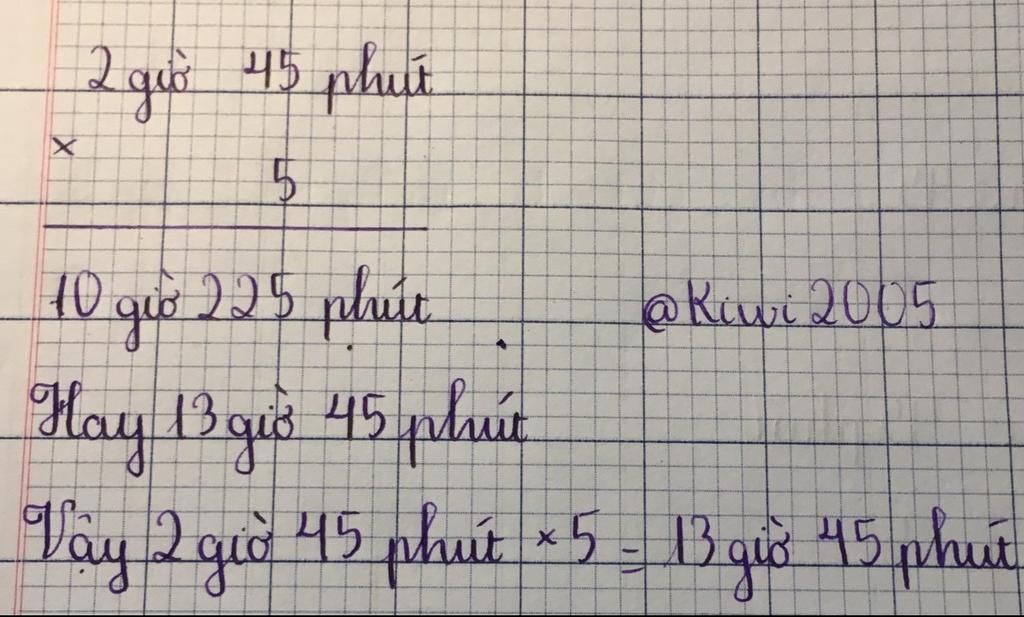 2 giờ 45 phút
×
5
10 giờ 225 phút
@Kiwi2005
Hay 13 giờ 45 phút
Vậy 2 giờ 45 phút × 5 = 13 giờ 45 phút